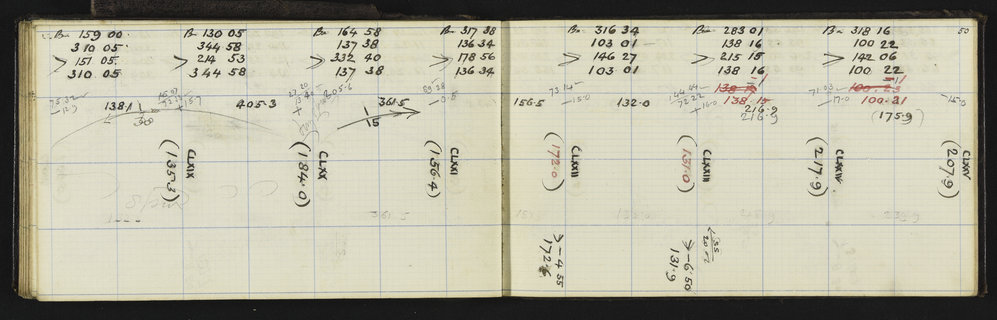 Bn 159 00
310 05
> 151 05
310 05
Bn 130 05
344 58
> 214 53
344 58
Bn 164 58
137 38
> 332 40
137 38
Bn 317 38
136 34
> 178 56
136 34
Bn 316 34
103 01
> 146 27
103 01
Bn 283 01
138 16
> 215 15
138 16
Bn 318 16
100 22
> 142 06
100 22
50
138.1
405.3
361.5
15
156.5
73.14
-15.0
132.0
72 22
+16.0
138 15
216.9
216.9
-17.0
100.21
(175.9)
-15.0
CLXIX
(135.3)
CLXX
(184.0)
CLXXI
(156.4)
CLXXII
(172.0)
CLXXIII
(131.0)
CLXXIV
(217.9)
CLXXV
(207.9)
361.5
> -4 55
172.6
> -6 50
131.9